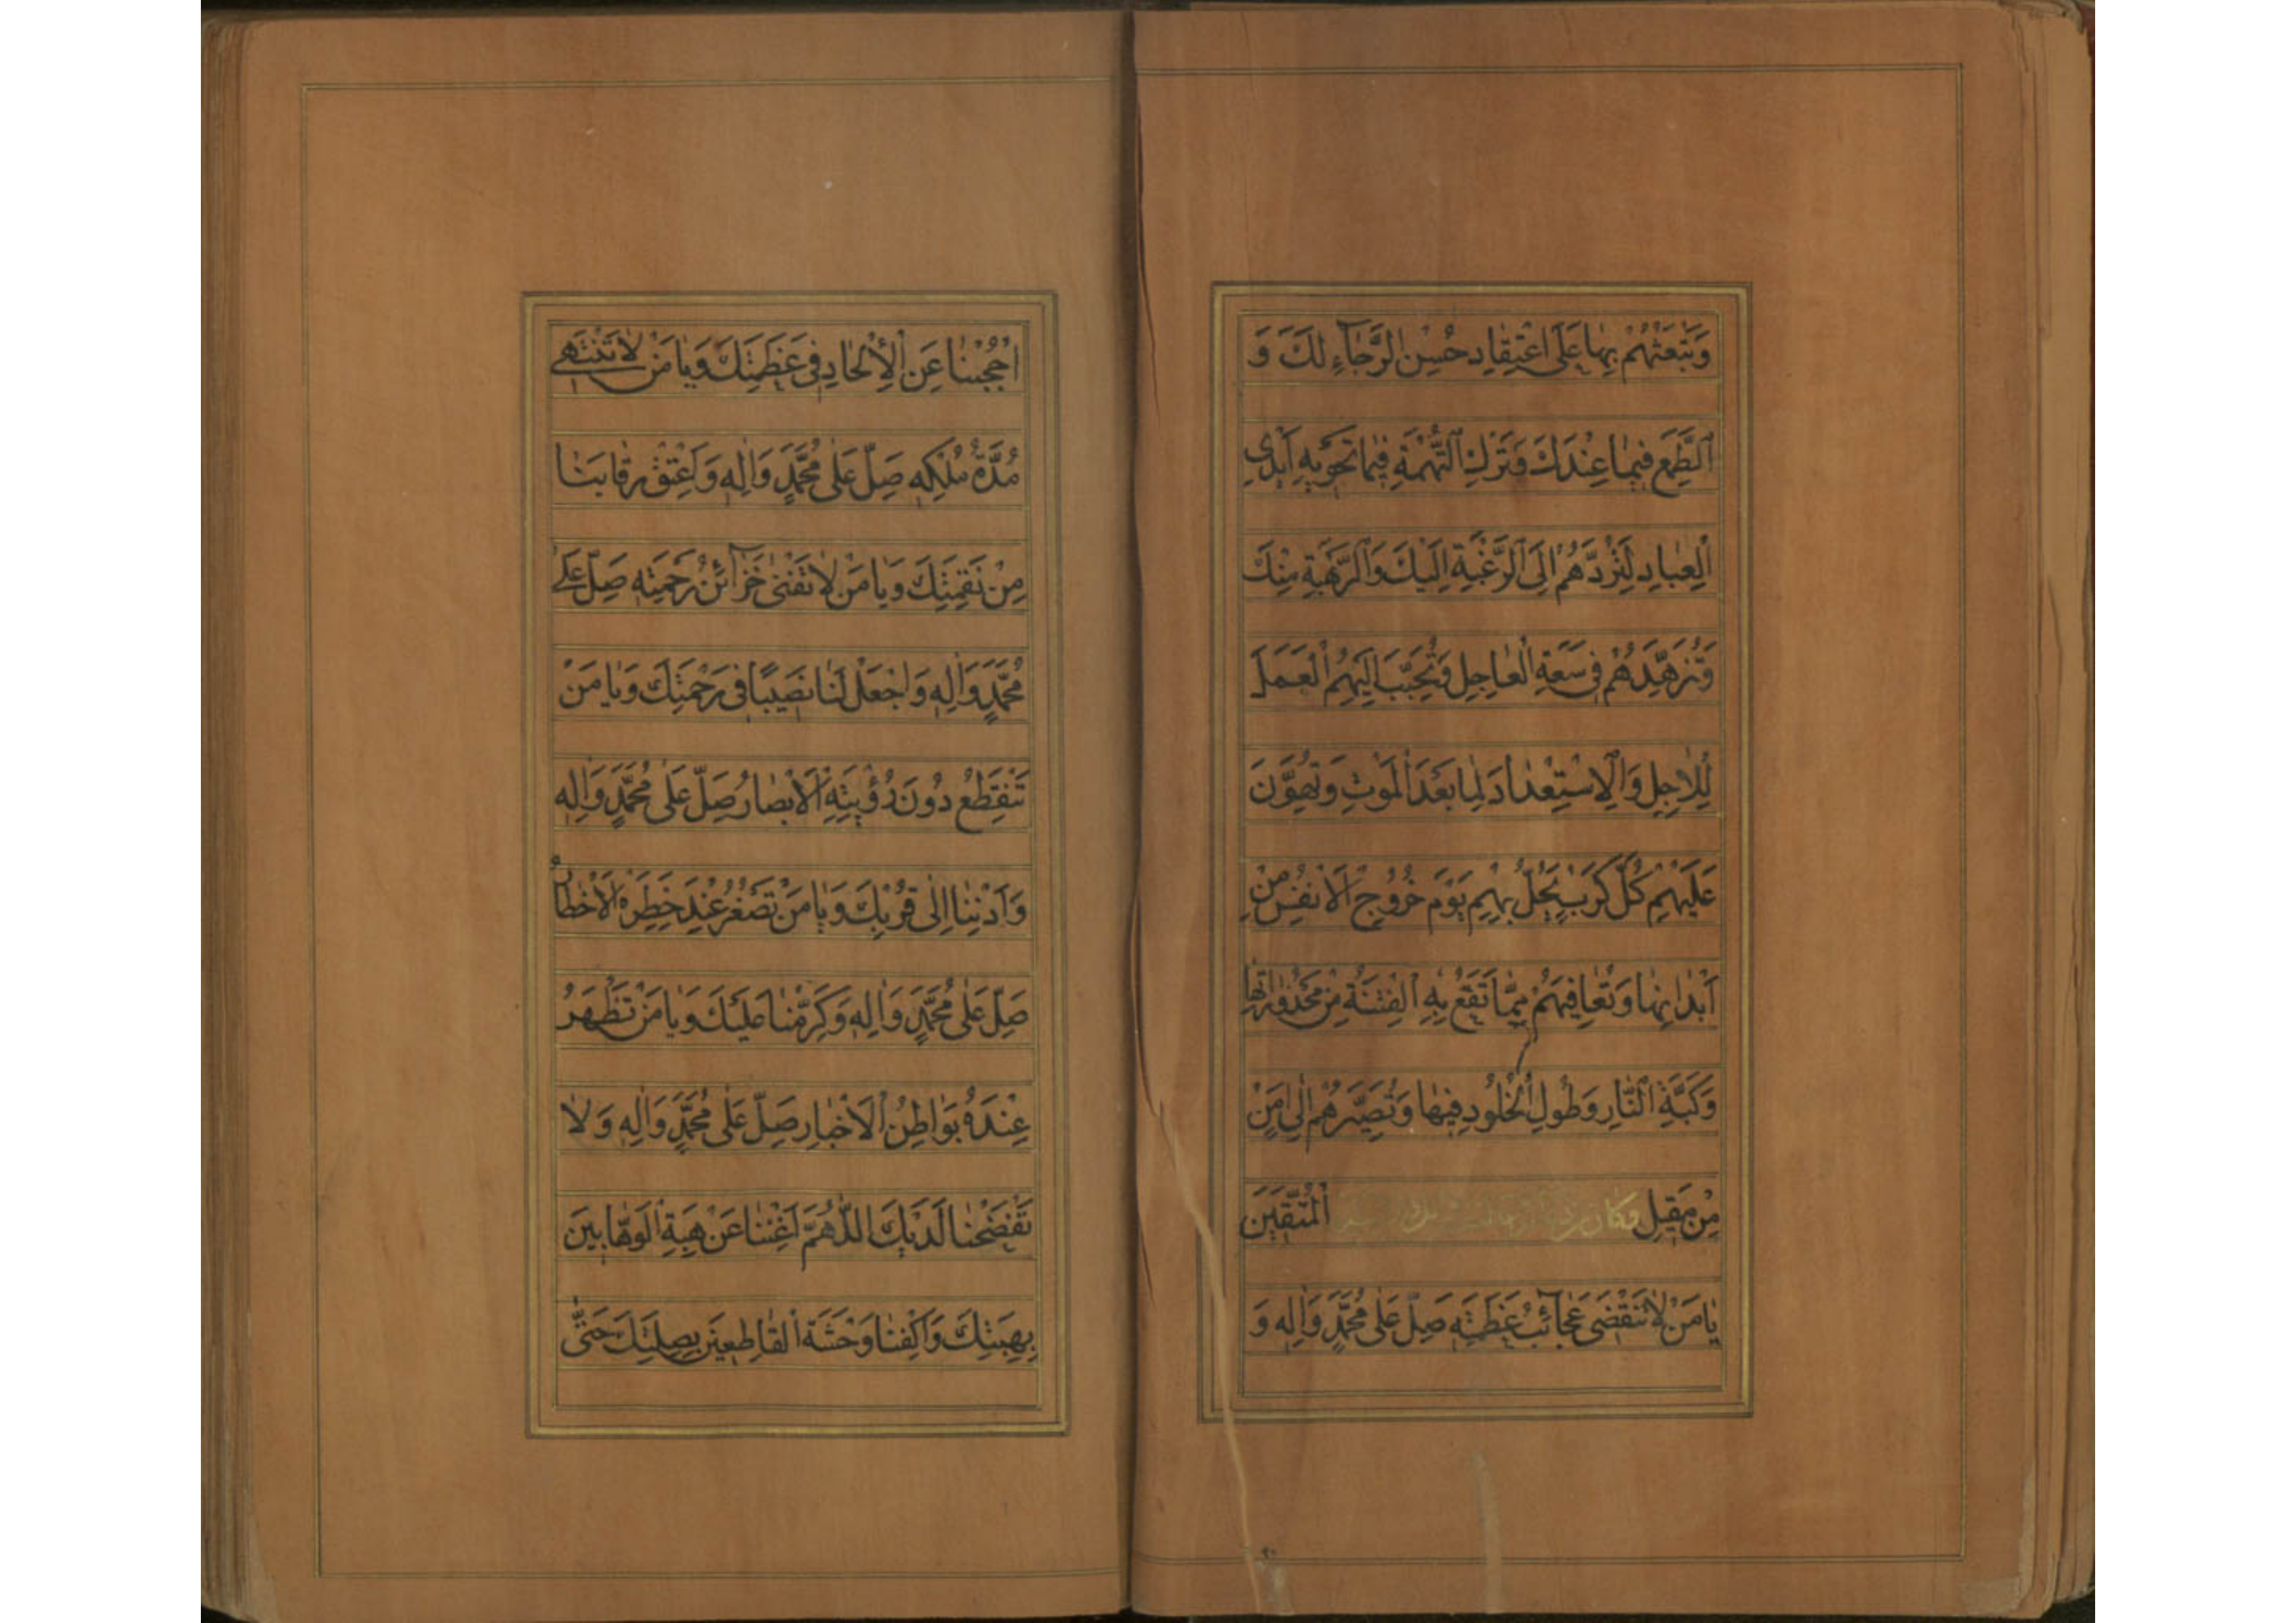 وَتَبْعَثُهُمْ بِهَا عَلَى اعْتِقَادِ حُسْنِ الرَّجَاءِ لَكَ وَ
الطَّمَعِ فِيمَا عِنْدَكَ وَتَرْكِ التُّهْمَةِ فِيمَا تَحْوِيهِ أَيْدِي
الْعِبَادِ لِتَرُدَّهُمْ إِلَى الرَّغْبَةِ إِلَيْكَ وَالرَّهْبَةِ مِنْكَ
وَتُزَهِّدَهُمْ فِي سَعَةِ الْعَاجِلِ وَتُحَبِّبَ إِلَيْهِمُ الْعَمَلَ
لِلْآجِلِ وَالْاِسْتِعْدَادَ لِمَا بَعْدَ الْمَوْتِ وَتُهَوِّنَ
عَلَيْهِمْ كُلَّ كَرْبٍ يَحُلُّ بِهِمْ يَوْمَ خُرُوجِ الْأَنْفُسِ مِنْ
أَبْدَانِهَا وَتُعَافِيَهُمْ مِمَّا تَقَعُ بِهِ الْفِتْنَةُ مِنْ مَحْذُورَاتِهَا
وَكَبَّةِ النَّارِ وَطُولِ الْخُلُودِ فِيهَا وَتُصَيِّرَهُمْ إِلَى أَمْنٍ
مِنْ مَقِيلِ الْمُتَّقِينَ وَكَانَ مِنْ
يَا مَنْ لَا تَنْقَضِي عَجَائِبُ عَظَمَتِهِ صَلِّ عَلَى مُحَمَّدٍ وَآلِهِ وَ
احْجُبْنَا عَنِ الْإِلْحَادِ فِي عَظَمَتِكَ وَيَا مَنْ لَا تَنْتَهِي
مُدَّةُ مُلْكِهِ صَلِّ عَلَى مُحَمَّدٍ وَآلِهِ وَأَعْتِقْ رِقَابَنَا
مِنْ نَقِمَتِكَ وَيَا مَنْ لَا تَفْنَى خَزَائِنُ رَحْمَتِهِ صَلِّ عَلَى
مُحَمَّدٍ وَآلِهِ وَاجْعَلْ لَنَا نَصِيبًا فِي رَحْمَتِكَ وَيَا مَنْ
تَنْقَطِعُ دُونَ رُؤْيَتِهِ الْأَبْصَارُ صَلِّ عَلَى مُحَمَّدٍ وَآلِهِ
وَأَدْنِنَا إِلَى قُرْبِكَ وَيَا مَنْ تَصْغُرُ عِنْدَ خَطَرِهِ الْأَخْطَارُ
صَلِّ عَلَى مُحَمَّدٍ وَآلِهِ وَكَرِّمْنَا عَلَيْكَ وَيَا مَنْ تَظْهَرُ
عِنْدَهُ بَوَاطِنُ الْأَخْبَارِ صَلِّ عَلَى مُحَمَّدٍ وَآلِهِ وَلَا
تَفْضَحْنَا لَدَيْكَ اللَّهُمَّ أَغْنِنَا عَنْ هِبَةِ الْوَهَّابِينَ
بِهِبَتِكَ وَاكْفِنَا وَحْشَةَ الْقَاطِعِينَ بِصِلَتِكَ حَتَّى